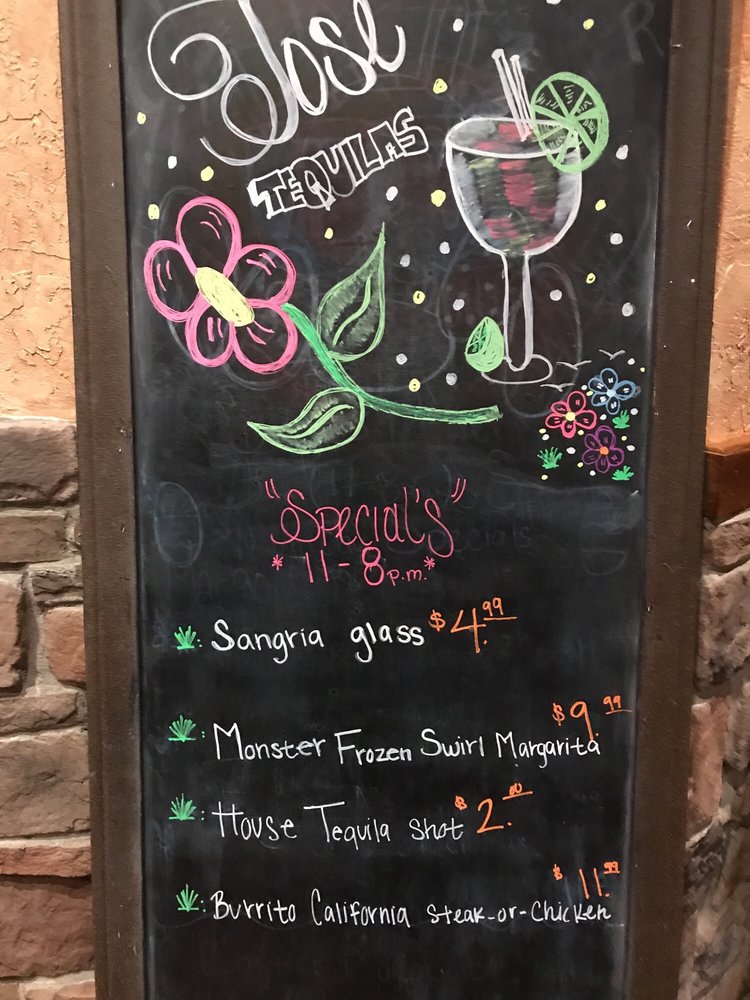 Jose
TEQUILAS
"Special's"
*11-8p.m.*
: Sangria glass $4.99
: Monster Frozen Swirl Margarita $9.99
: House Tequila shot $2.00
: Burrito California steak-or-chicken $11.99